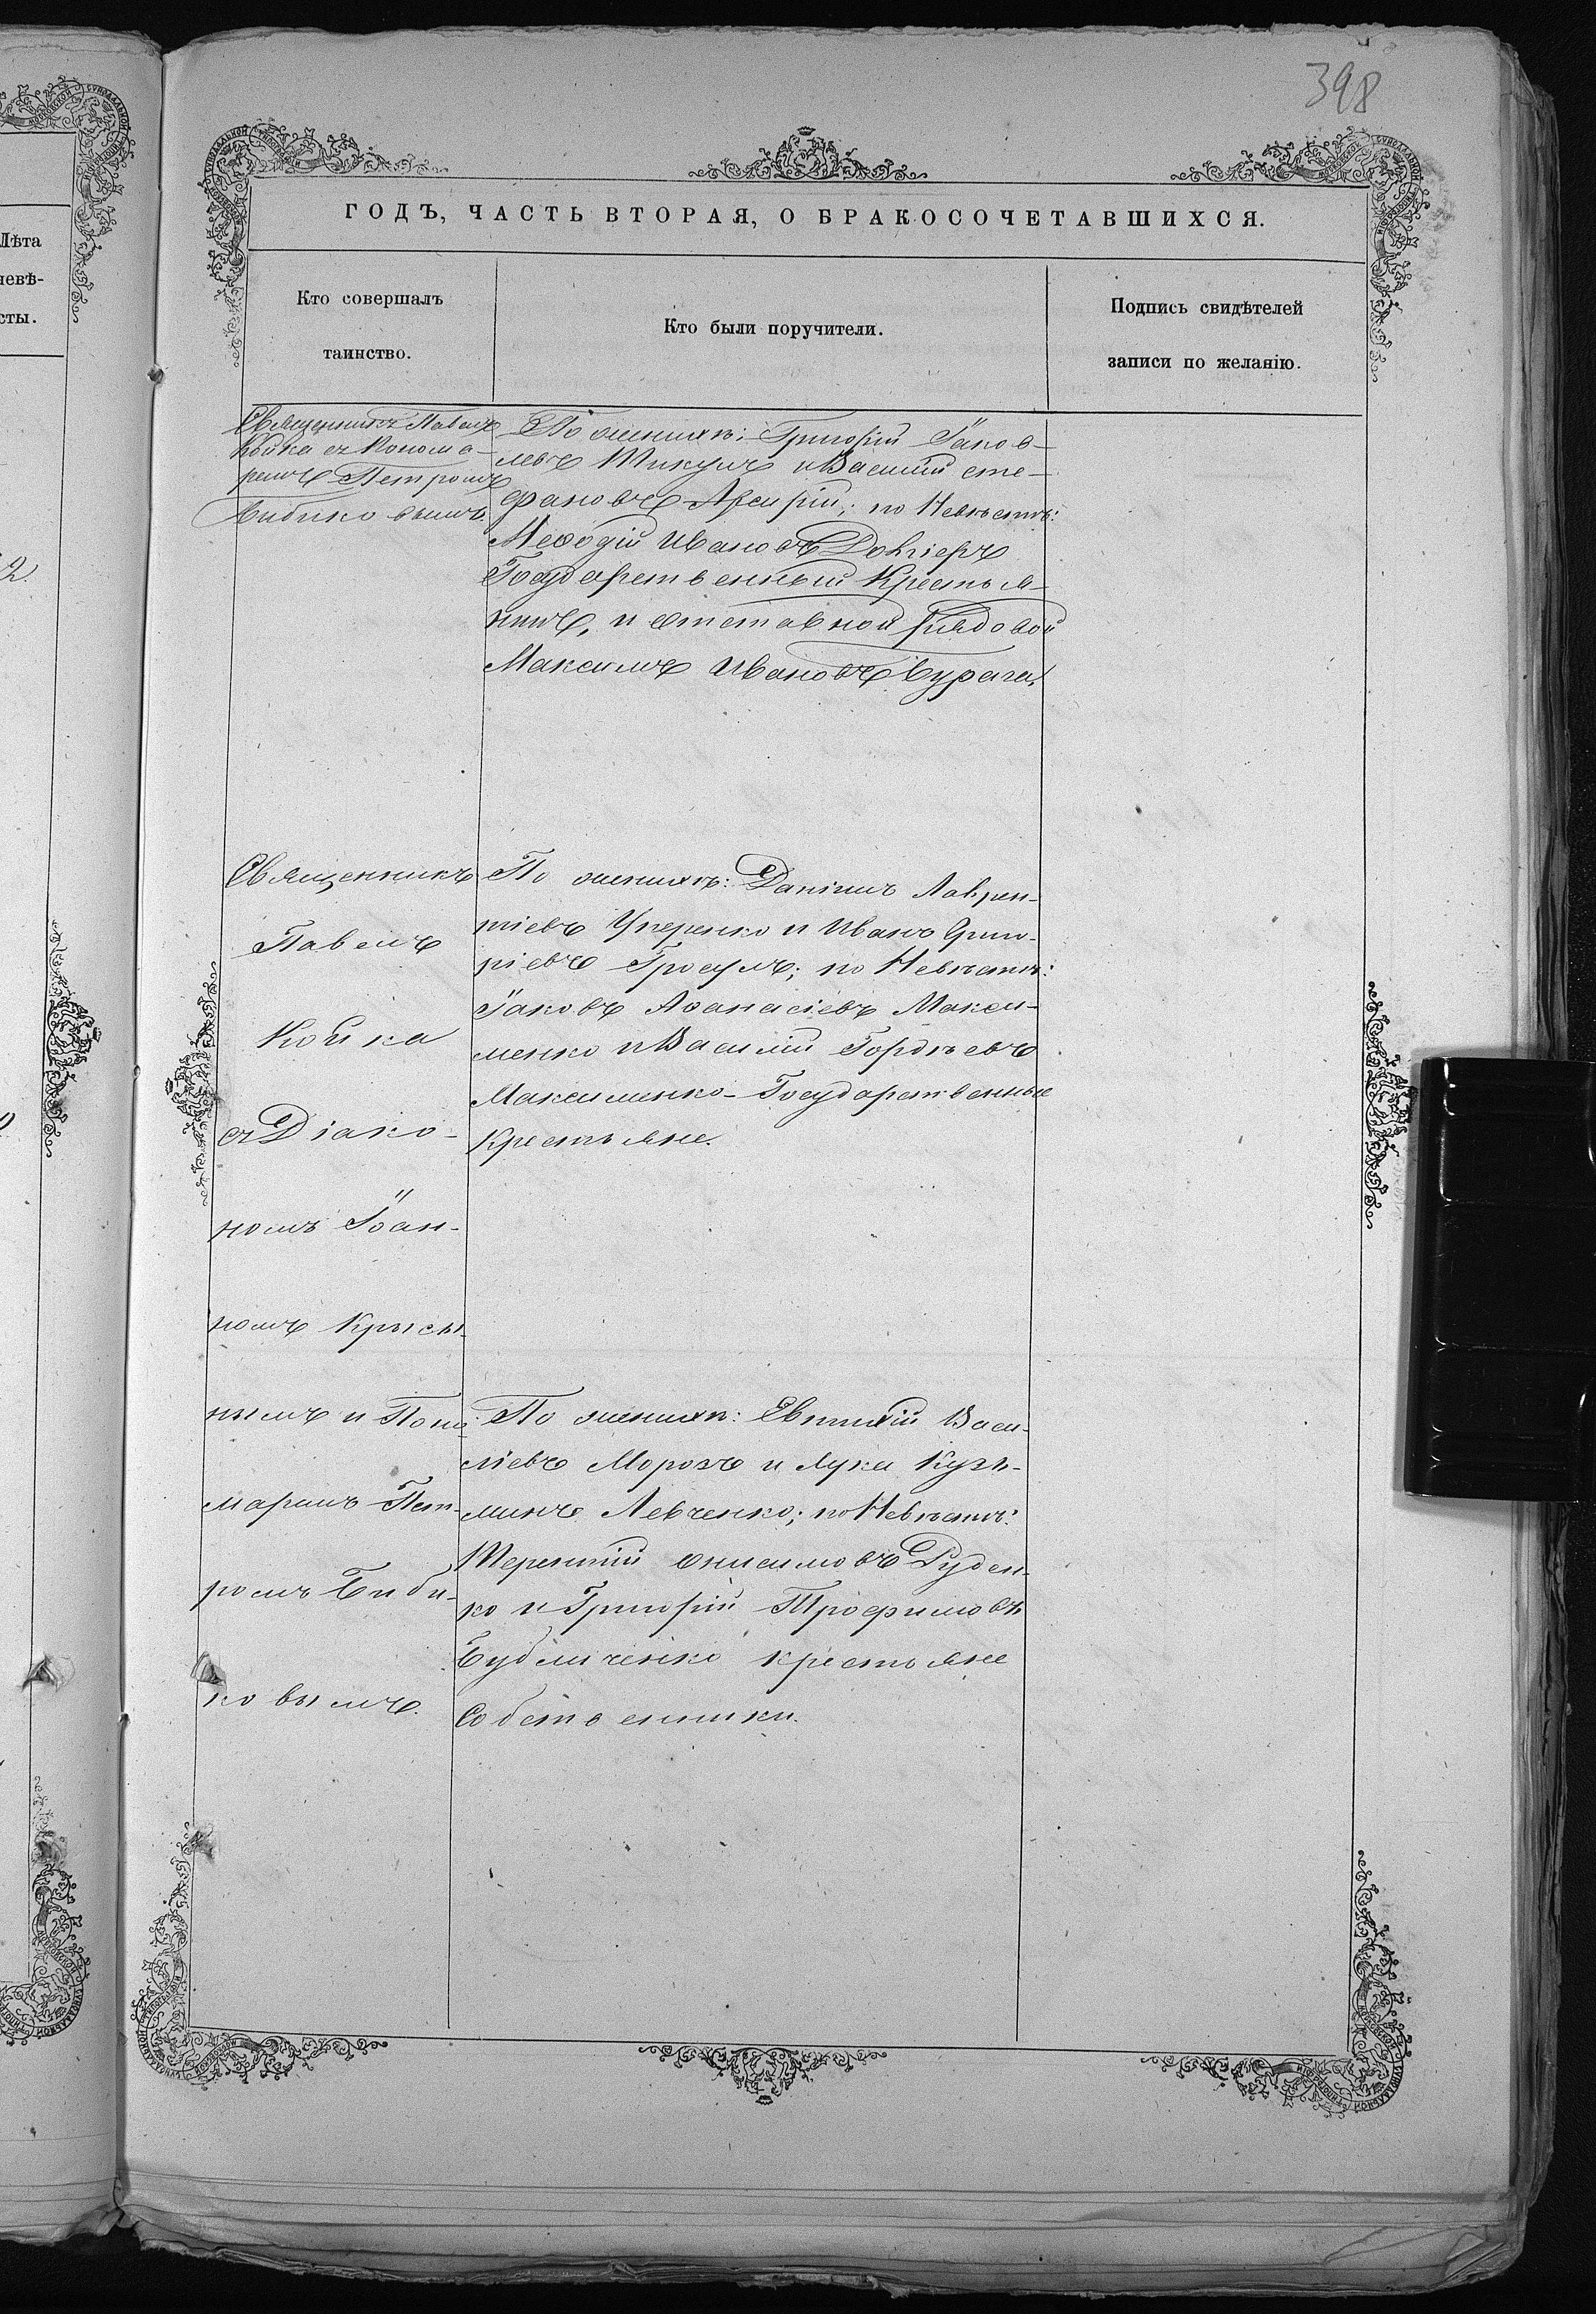 398
ГОДЪ, ЧАСТЬ ВТОРАЯ, О БРАКОСОЧЕТАВШИХСЯ.
Лѣта
невѣ-
сты.
Кто совершалъ
таинство.
Кто были поручители.
Подпись свидѣтелей
записи по желанію.
Священникъ Павелъ
Койка съ Понома-
ремъ Петромъ
Бибиковымъ.
По женихѣ: Григорій Яков-
левъ Шикулъ и Василій Сте-
фановъ; по Невѣстѣ:
Меѳодій Ивановъ
Государственный Крестья-
нинъ, и отставной рядовой
Максимъ Ивановъ Бурага.
Священникъ
Павелъ
Койка
съ Діако-
номъ Іоан-
номъ Крысы-
нымъ и Поно-
маримъ Пет-
ромъ Биби-
ковымъ.
По женихѣ: Даніилъ Лаврен-
тіевъ и Иванъ Григо-
ріевъ; по Невѣстѣ:
Іаковъ Аѳанасіевъ Макси-
менко и Василій Гордѣевъ
Максименко - Государственные
Крестьяне.
По женихѣ: Евтихій Васи-
ліевъ Морозъ и Лука Кузь-
минъ Левченко; по Невѣстѣ:
Терентій Онисимовъ Руден-
ко и Григорій Трофимовъ
Бубличенко крестьяне
Собственники.